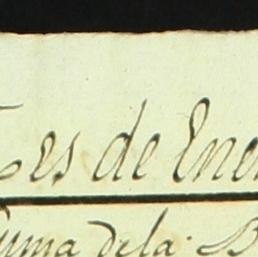 es de Ene
uma dela. B